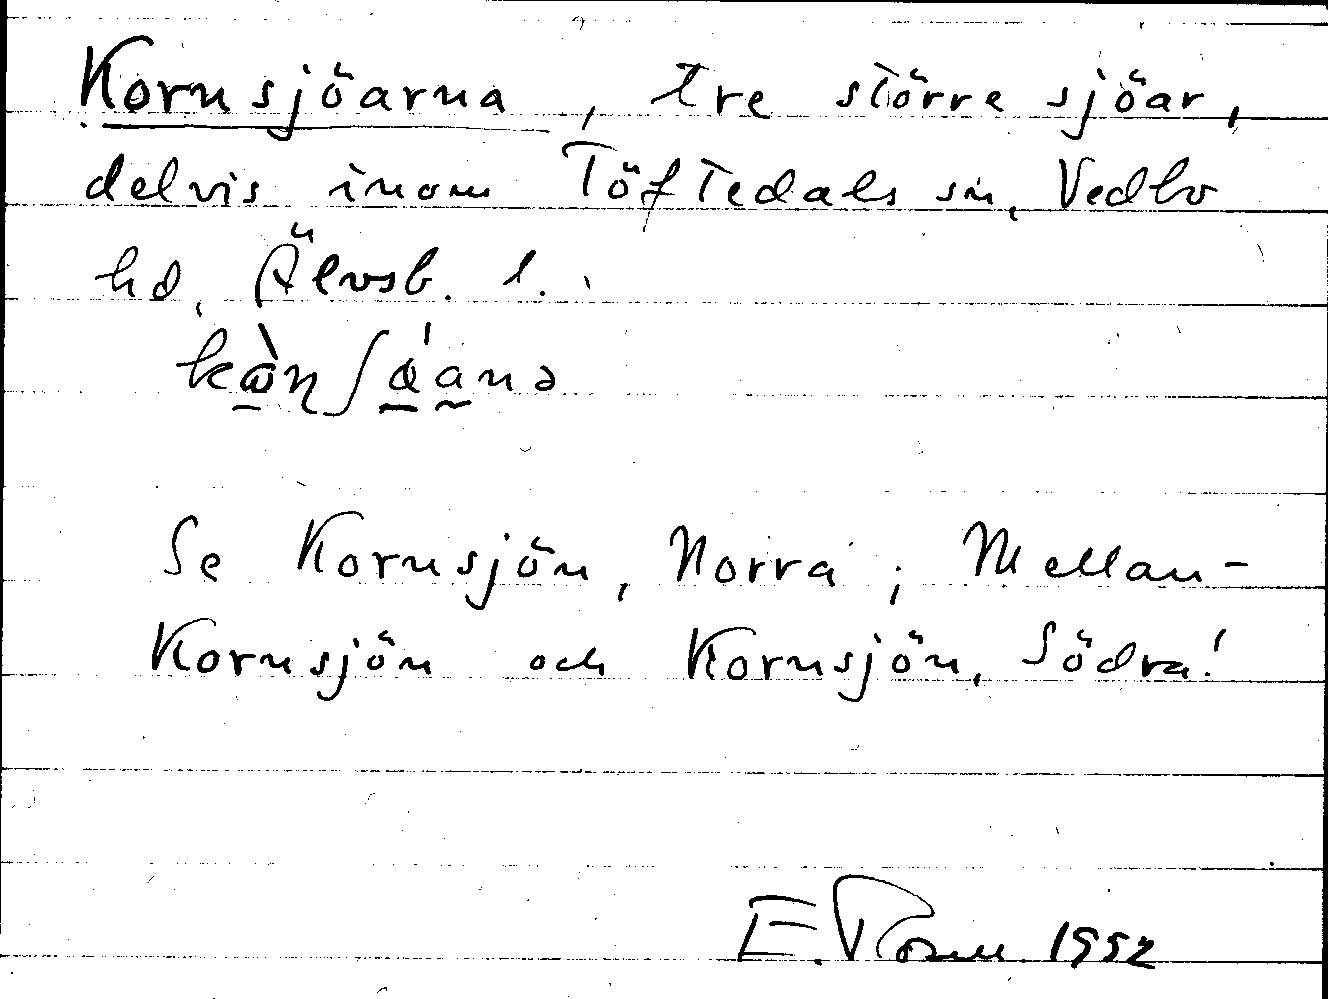 Kornsjöarna, tre större sjöar,
delvis inom Töftedals sn, Vedbo
hd, Älvsb. l.
Se Kornsjön, Norra; Mellan-
Kornsjön och Kornsjön, Södra!
E. 1992